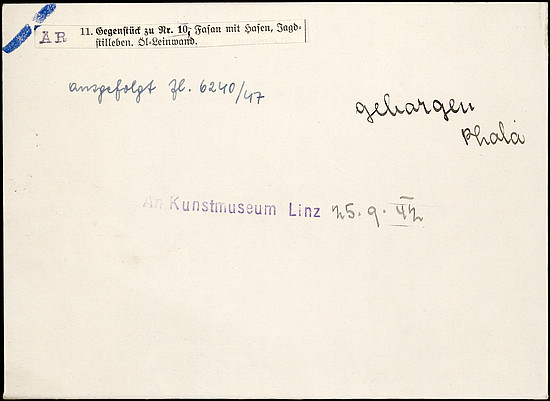 AR 11. Gegenstück zu Nr. 10, Fasan mit Hasen, Jagd-
stilleben. Öl-Leinwand.
ausgefolgt Zl. 6240/47
geborgen
An Kunstmuseum Linz 25. 9. 42